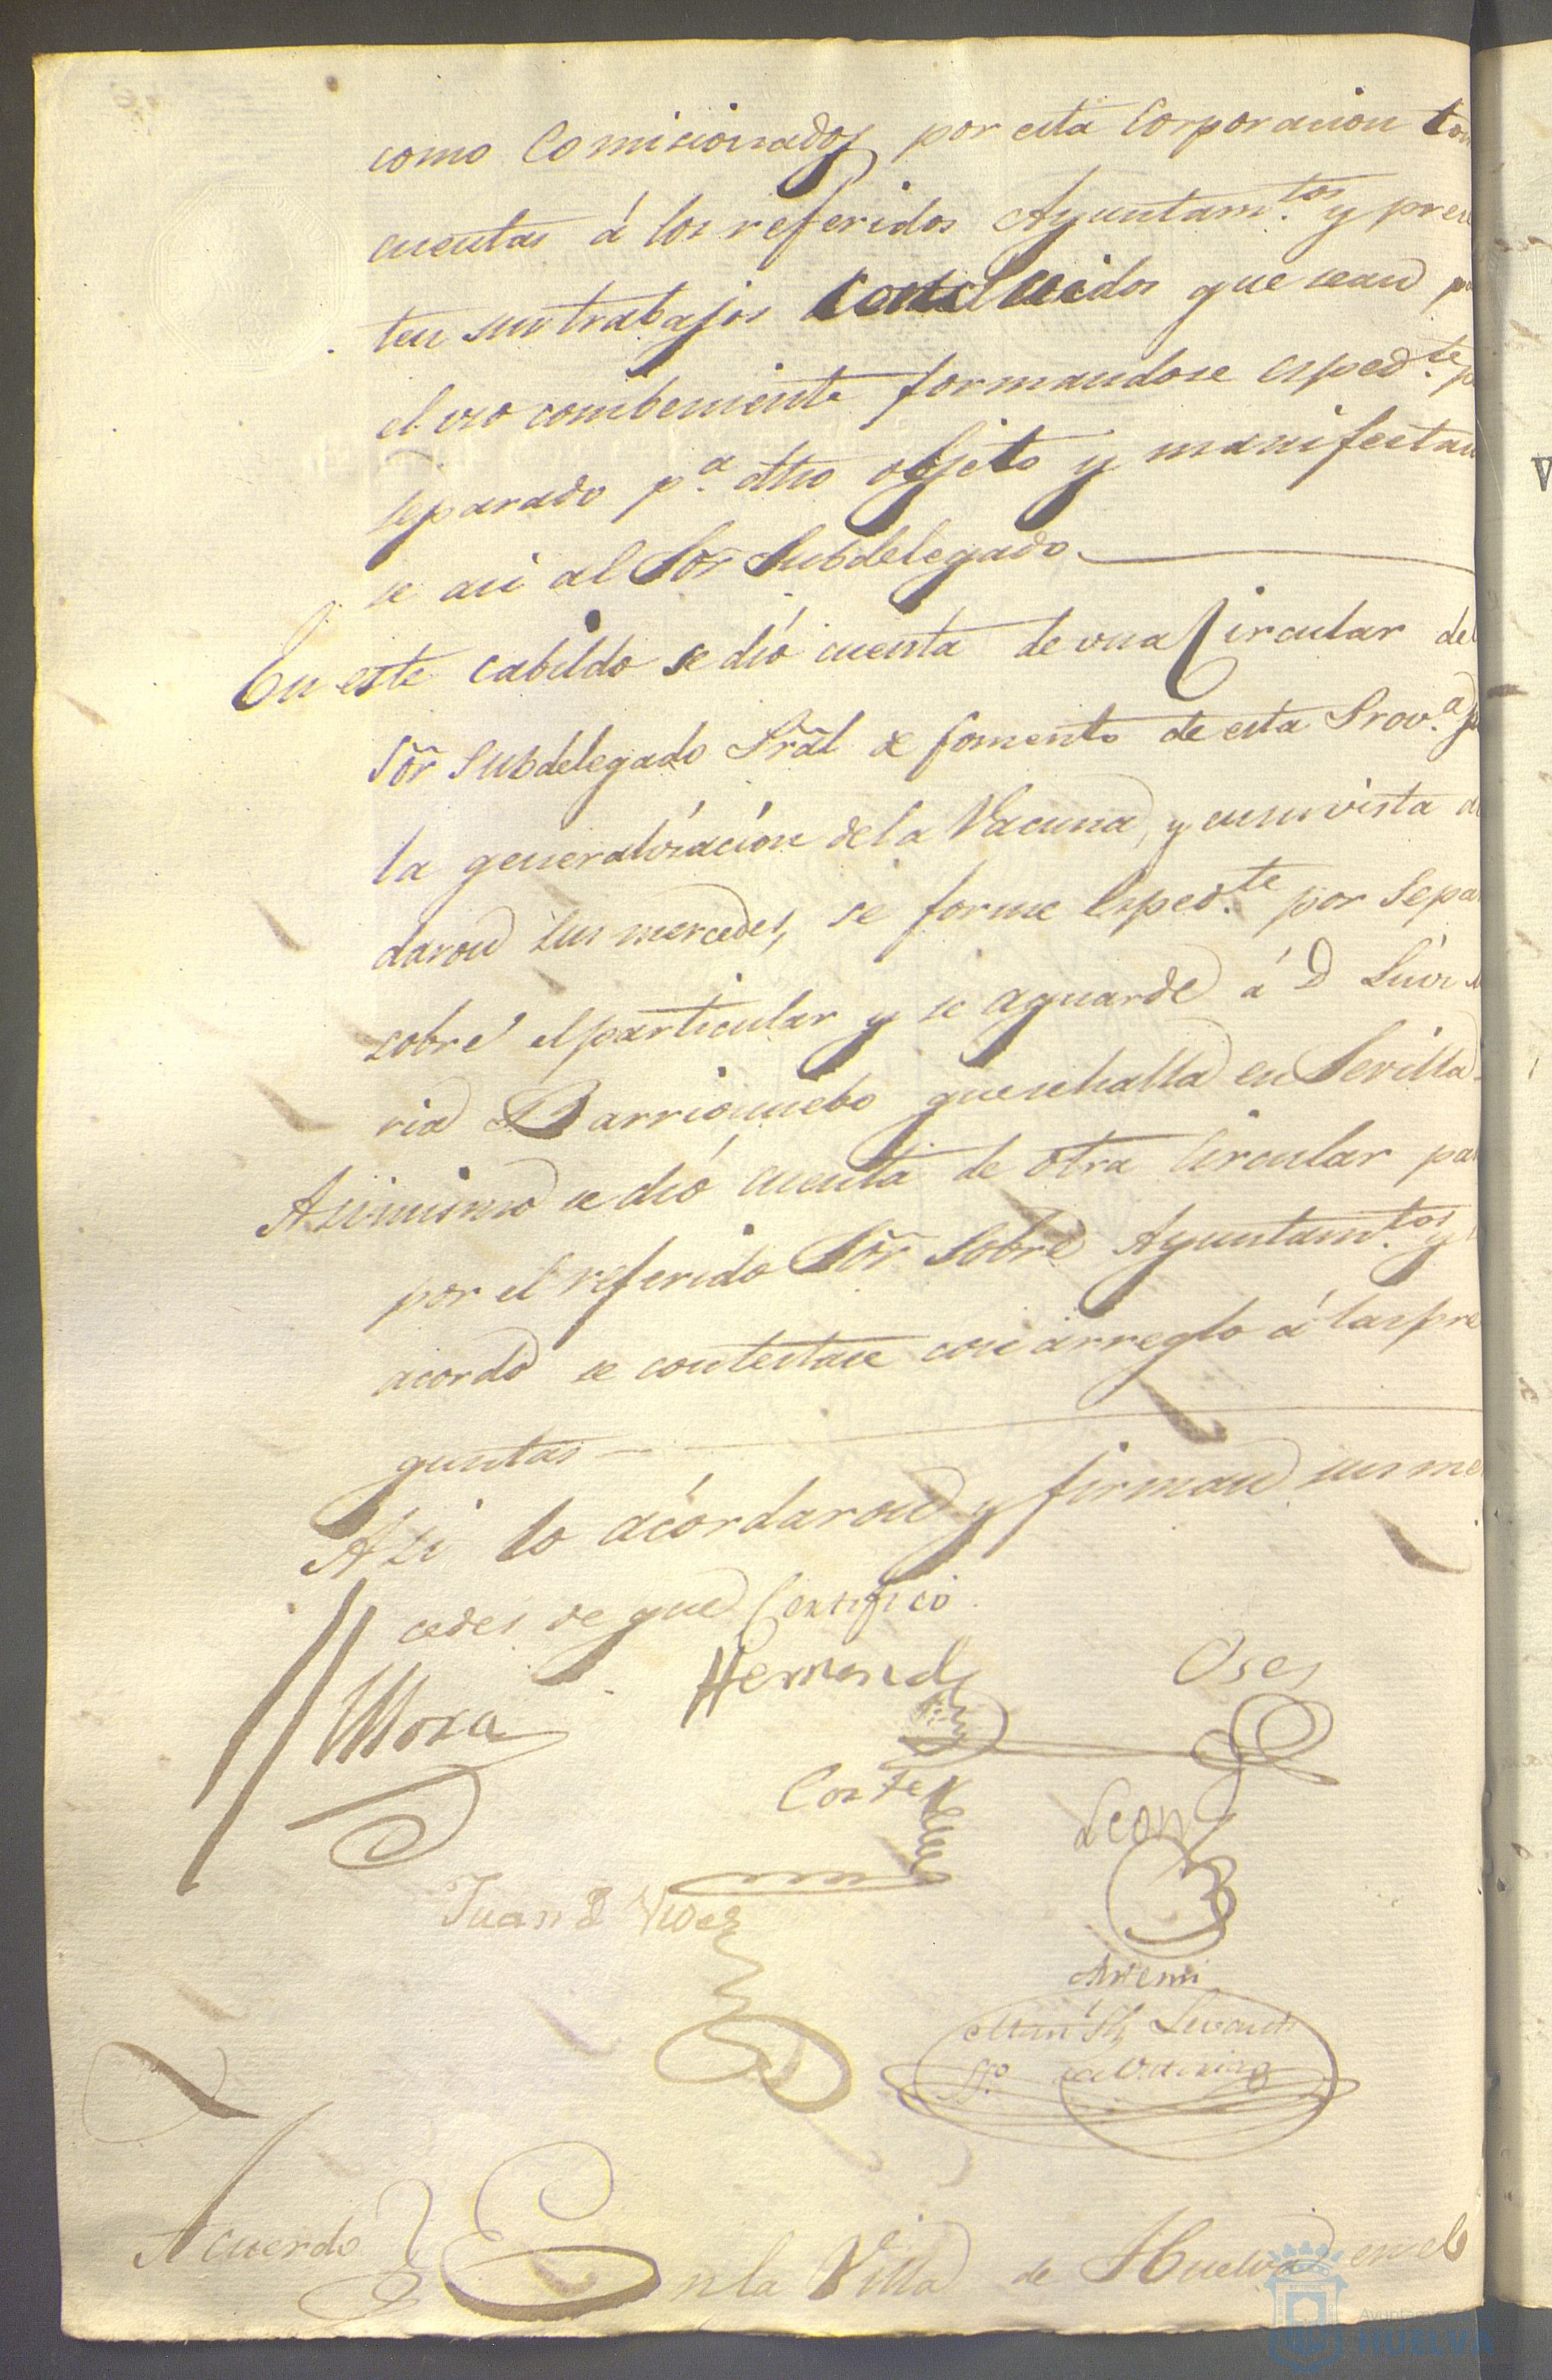 como Comicionados por esta Corporacion tom
cuentas á los referidos Ayuntam.tos y presen
ten sus trabajos concluidos que sean p
el uso combeniente formandose esped.te p
separado p.a dho objeto y manifestan
se asi al Sõr Subdelegado
En este cabildo se dió cuenta de una Circular del
Sõr Subdelegado Prãl de fomento de esta Prov.a p
la generalización de la Vacuna, y en su vista a
daron sus mercedes, se forme esped.te por Sepa
sobre el particular y se aguarde á D Luis
ria Barrionuebo que se halla en Sevilla
Asi mismo se dió cuenta de otra Circular pa
por el referido Sõr sobre Ayuntam.tos y
acordó se contestase con arreglo á las pre
guntas
Asi lo acordaron y firman sus me
cedes de que Certifico
Mora Hernandz Oses
Cortes Leon
Juan
Antemi
Acuerdo En la Villa de Huelva en el
HUELVA